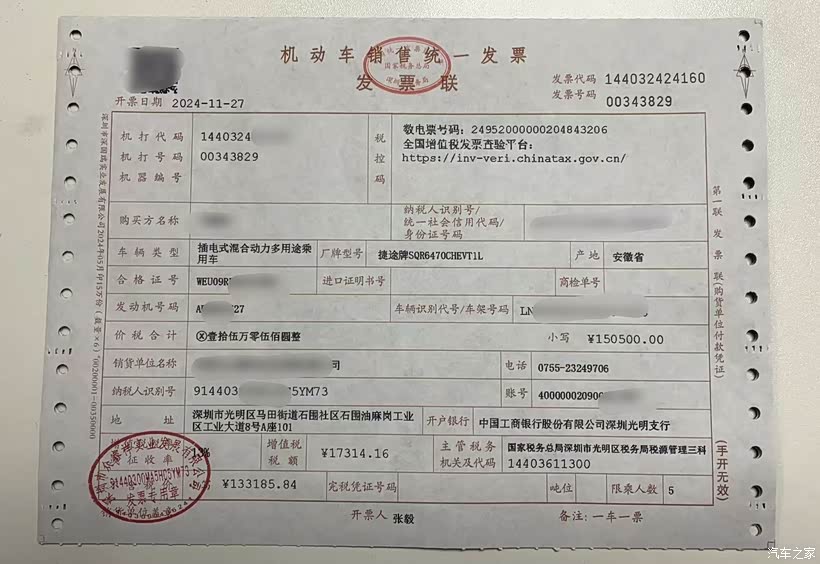 机动车销售统一发票
发票联
发票代码 144032424160
发票号码 00343829
开票日期 2024-11-27
机打代码 1440324
机打号码 00343829
机器编号
税控码
数电票号码：24952000000204843206
全国增值税发票查验平台：
https://inv-veri.chinatax.gov.cn/
购买方名称
纳税人识别号/
统一社会信用代码/
身份证号码
车辆类型 插电式混合动力多用途乘用车 厂牌型号 捷途牌SQR6470CHEVT1L 产地 安徽省
合格证号 WEU09R 进口证明书号 商检单号
发动机号码 27 车辆识别代号/车架号码 LN
价税合计 ⊗壹拾伍万零伍佰圆整 小写 ¥150500.00
销货单位名称 司 电话 0755-23249706
纳税人识别号 914403 5YM73 账号 40000002090
地址 深圳市光明区马田街道石围社区石围油麻岗工业区工业大道8号A座101 开户银行 中国工商银行股份有限公司深圳光明支行
增值税税额 ¥17314.16 主管税务机关及代码 国家税务总局深圳市光明区税务局税源管理三科 14403611300
¥133185.84 完税凭证号码 吨位 限乘人数 5
开票人 张毅 备注：一车一票
第一联 发票联(购货单位付款凭证)
(手开无效)
国家税务总局
发票专用章
汽车之家